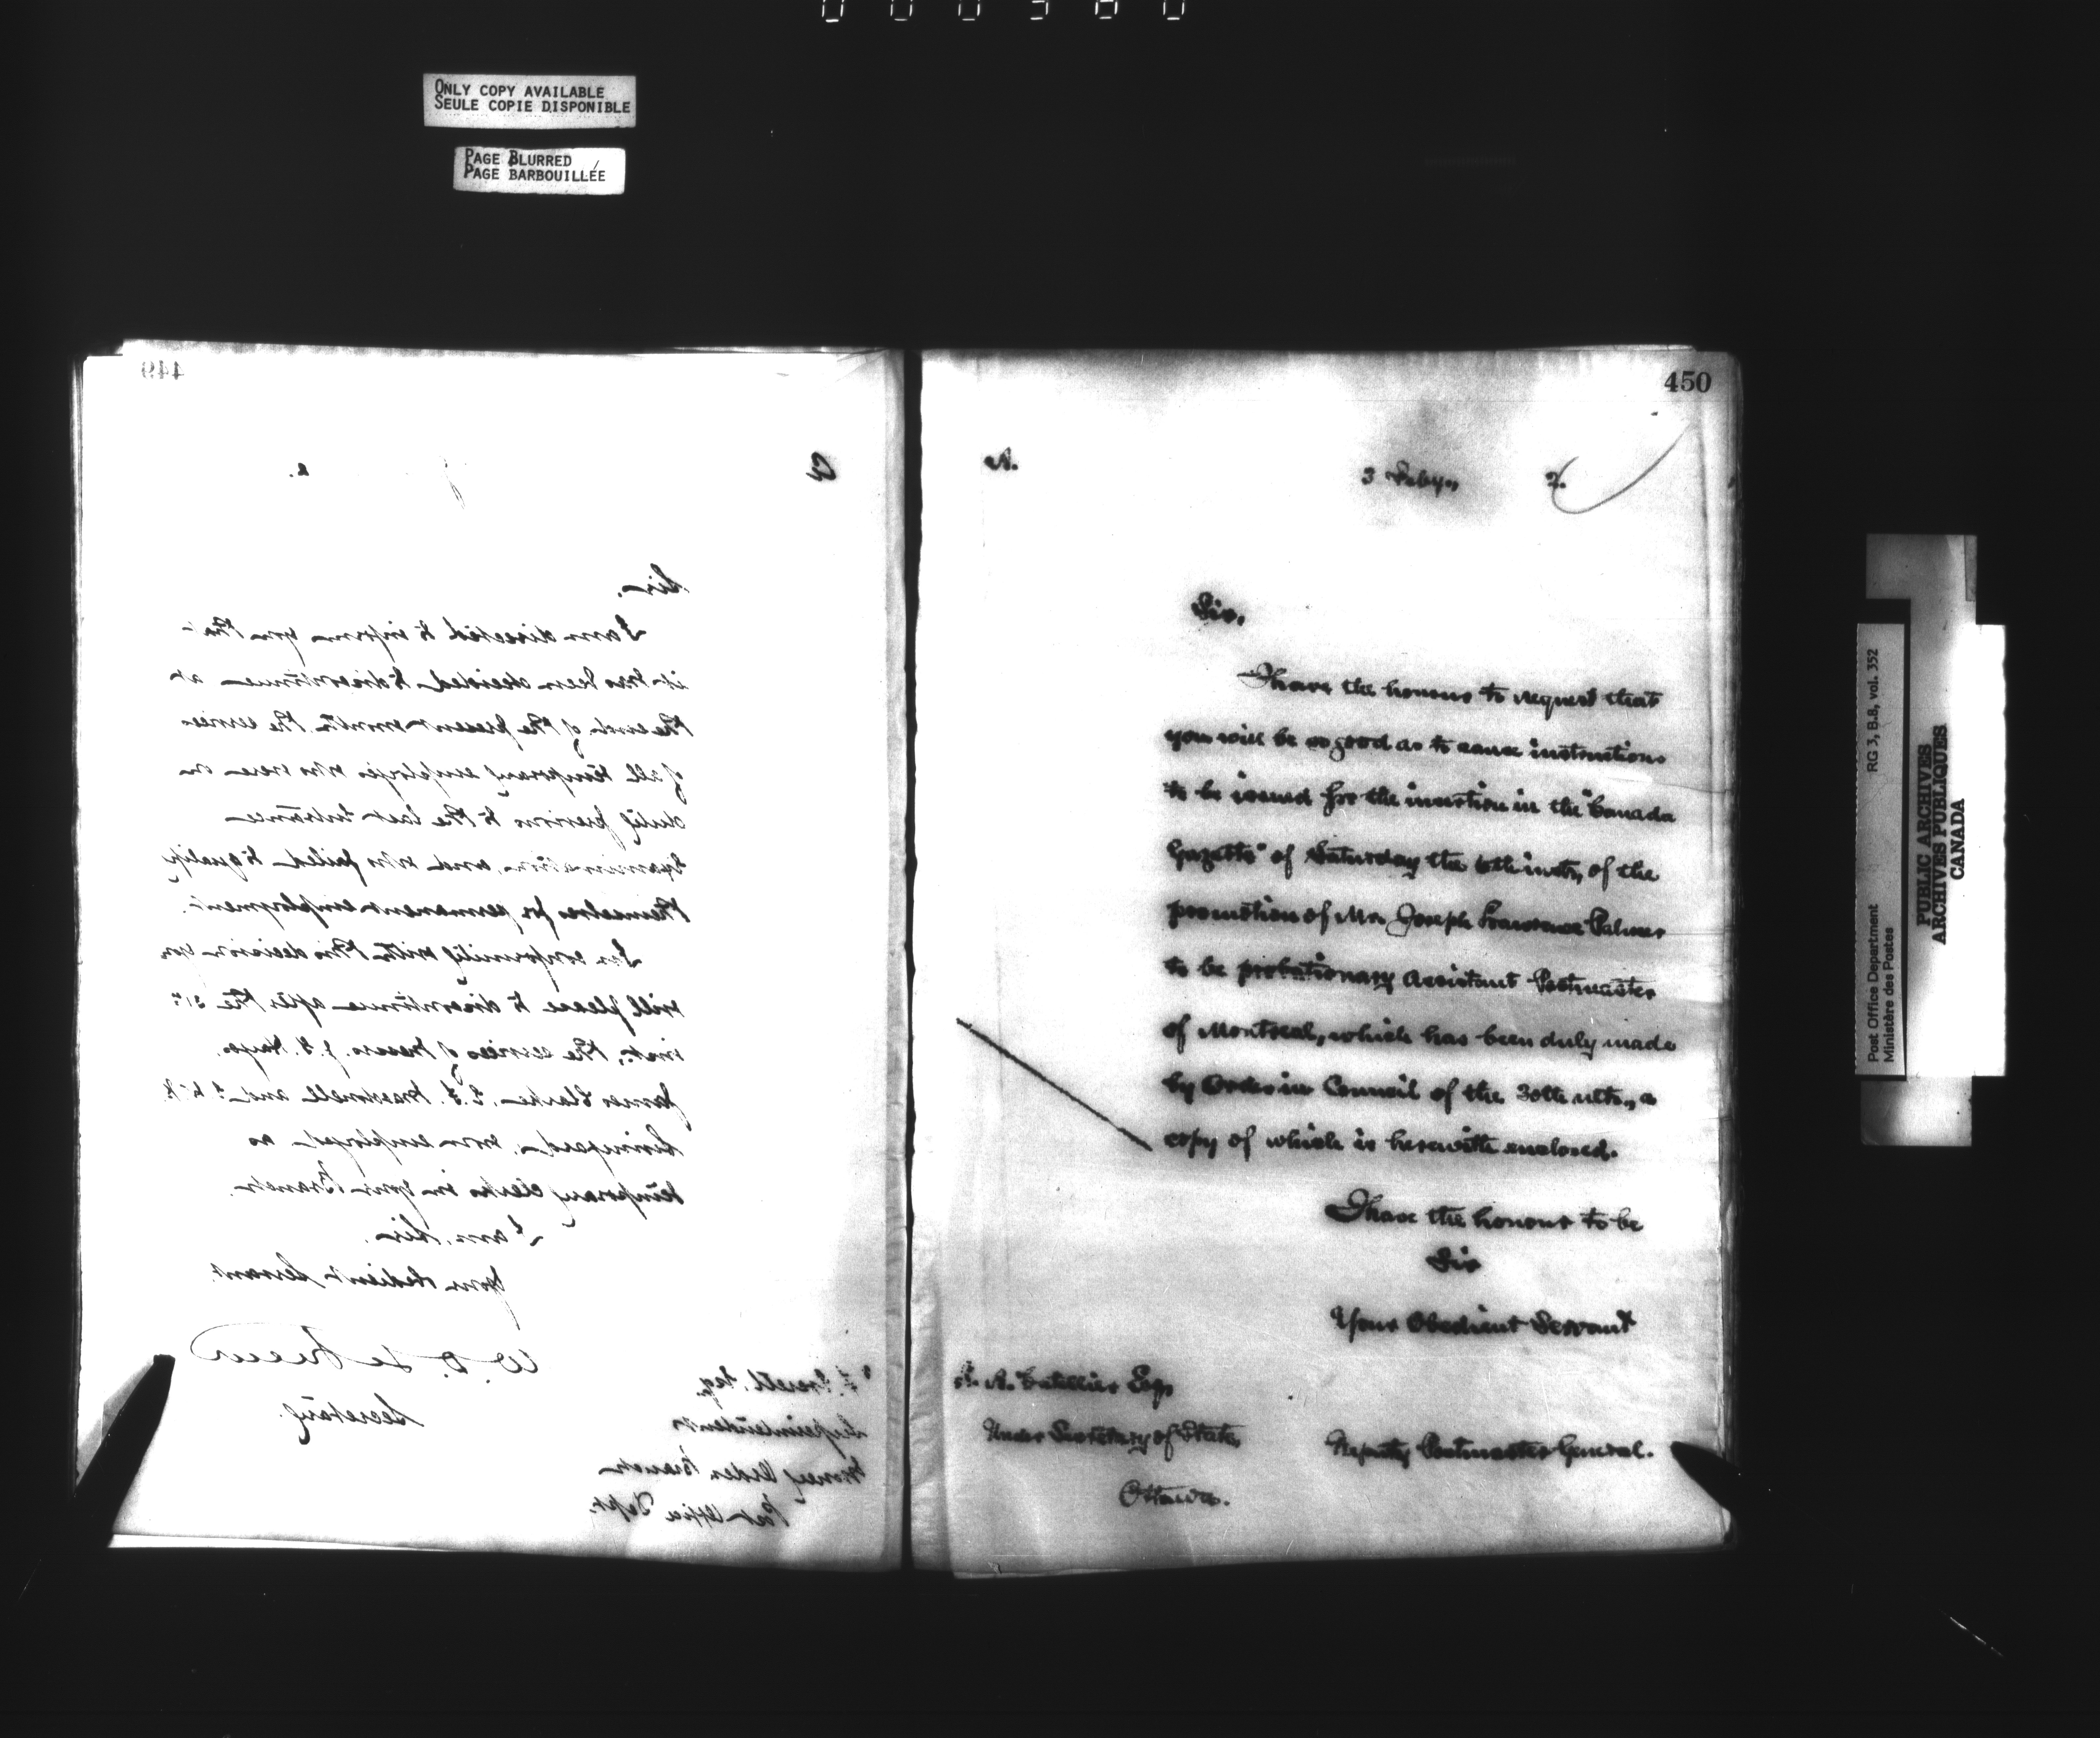 ONLY COPY AVAILABLE
SEULE COPIE DISPONIBLE
PAGE BLURRED
PAGE BARBOUILLÉE
449
Sir.
I am directed to inform you that
it has been decided to discontinue at
the end of the present month the services
of all temporary employés who were on
duty previous to the last Entrance
Examination, and who failed to qualify
themselves for permanent employment.
In conformity with this decision you
will please to discontinue after the 31st
inst., the services of Messrs.
James Clarke, and
now employed as
temporary clerks in your Branch.
I am, Sir.
Your obedient Servant.
W. D. LeSueur
Secretary.
Everett, Esq.
Superintendent
Money Order Branch
Post Office Dept.
450
A.
3 Feby., 2.
Sir,
I have the honour to request that
you will be so good as to cause instructions
to be issued for the insertion in the "Canada
Gazette" of Saturday the 6th inst., of the
promotion of Mr. Joseph Lawrence Palmer
to be probationary Assistant Postmaster
of Montreal, which has been duly made
by Order in Council of the 30th ulto., a
copy of which is herewith enclosed.
I have the honour to be
Sir
Your Obedient Servant
L. A. Catellier Esq,
Under Secretary of State,
Ottawa.
Deputy Postmaster General.
Post Office Department RG 3, B.8, vol. 352
Ministère des Postes
PUBLIC ARCHIVES
ARCHIVES PUBLIQUES
CANADA